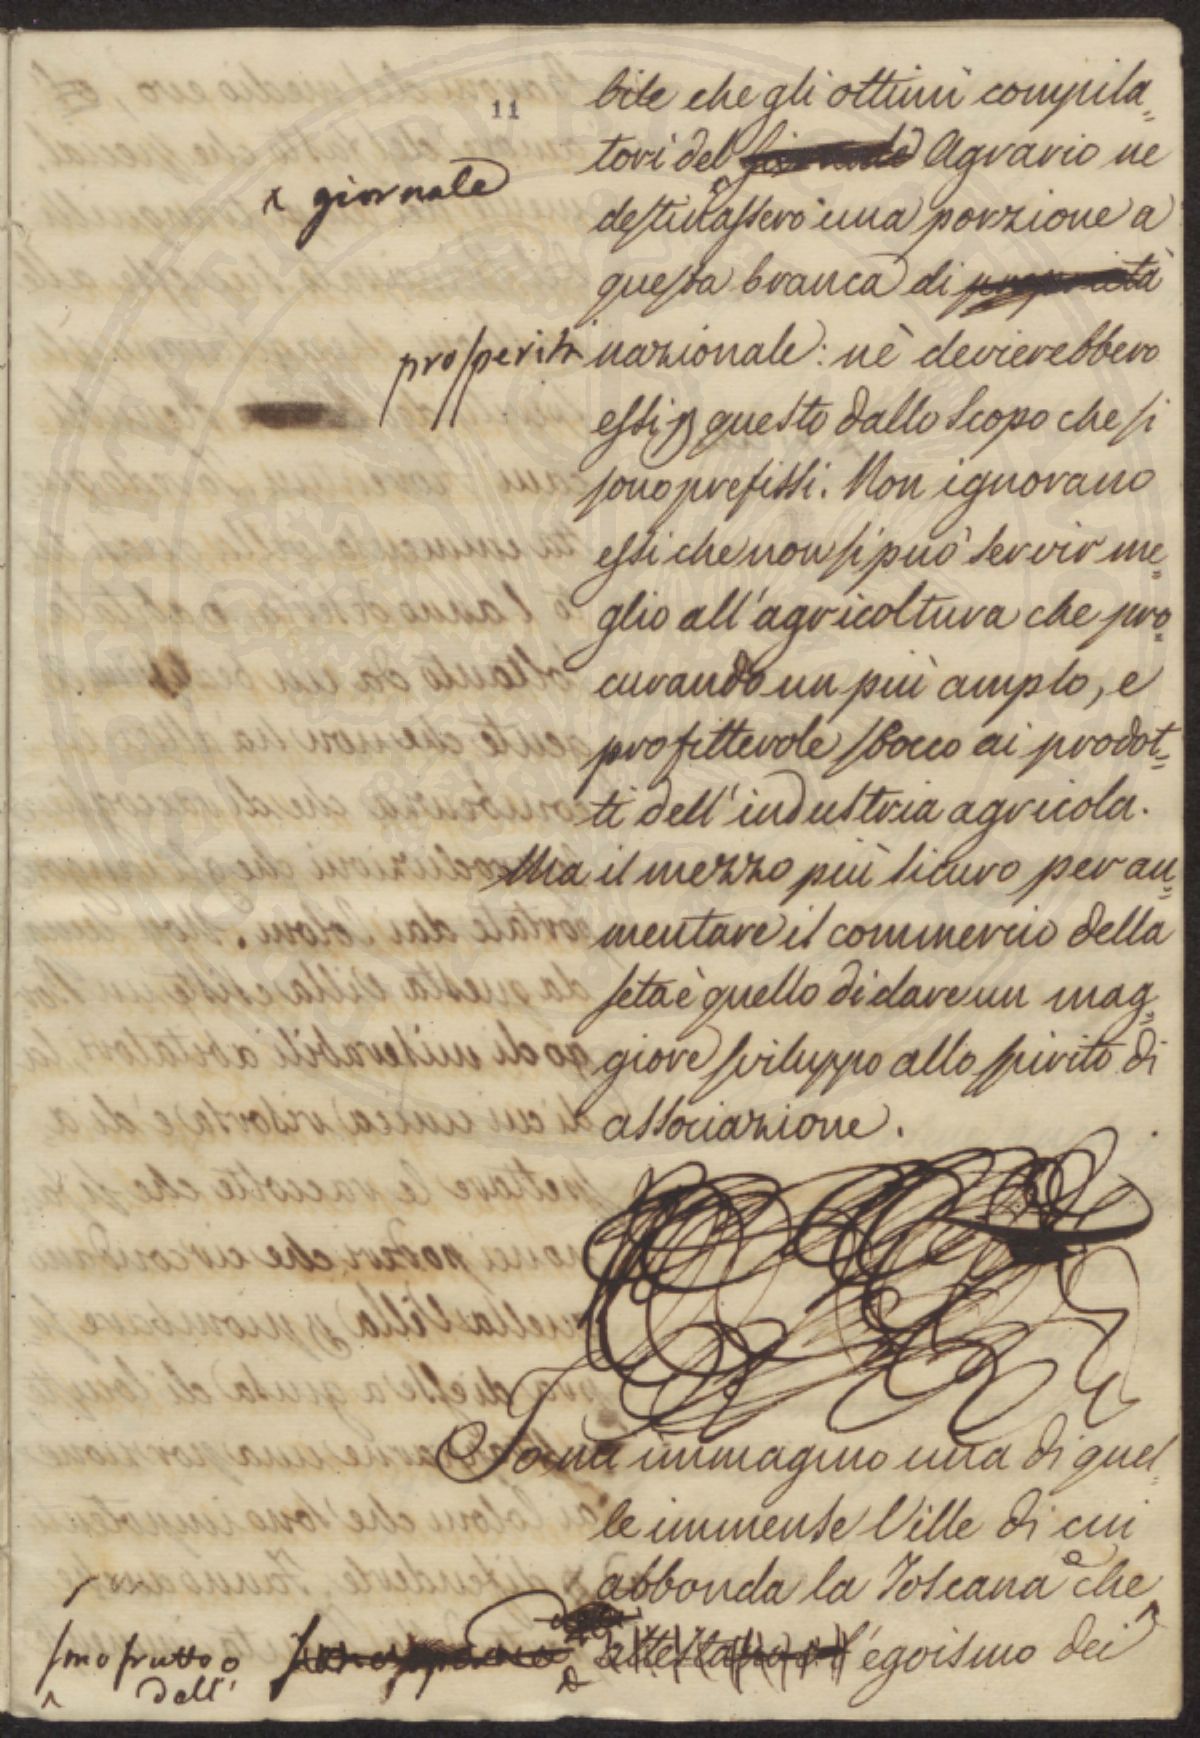 11
bile che gli ottimi compila=
tori del Agrario ne
x giornale
destinassero una porzione a
questa branca di proprietà
prosperità
nazionale: nè devierebbero
essi p questo dallo scopo che si
sono prefissi. Non ignorano
essi che non si può servir me=
glio all'agricoltura che pro=
curando un più amplo, e
profittevole sbocco ai prodot=
ti dell'industria agricola.
Ma il mezzo più sicuro per au=
mentare il commercio della
seta è quello di dare un mag=
giore sviluppo allo spirito di
associazione.
immagino una di quel=
le immense Ville di cui
abbonda la Toscana e che
attestano l'egoismo dei
sono frutto
dell'